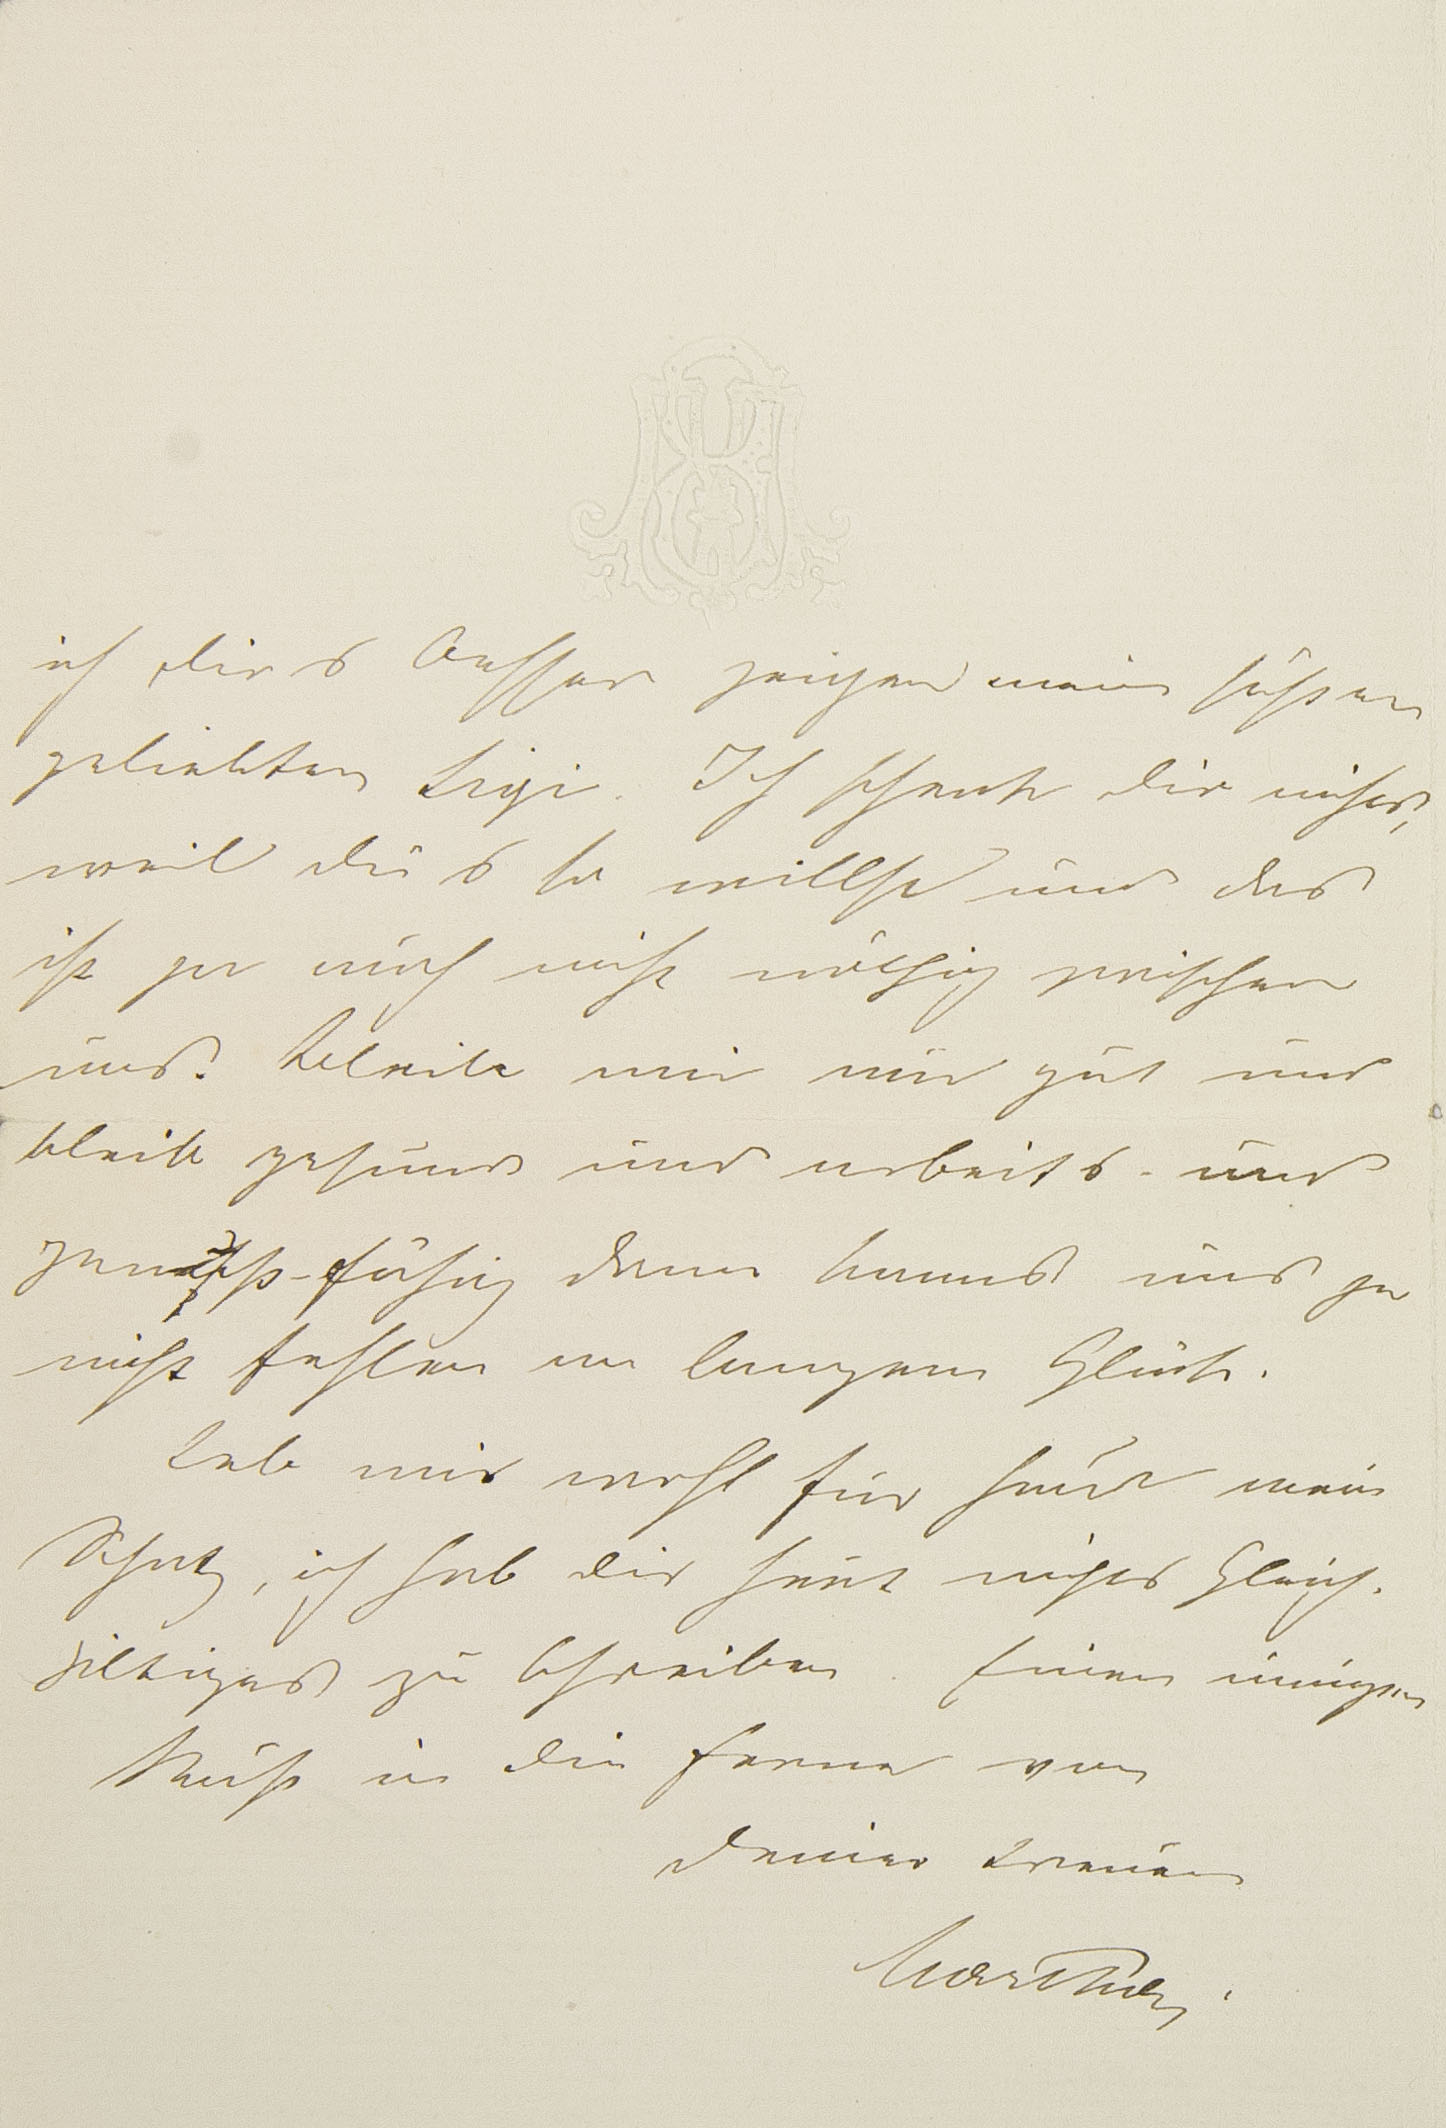 ich dir's besser zeigen mein süßer
geliebter Sigi. Ich schenk dir nichts,
weil du's so willst und das
ist ja auch nicht nöthig zwischen
uns. Bleibe mir nur gut und
bleibe gesund und arbeits- und
genuß-fähig dann kanns uns ja
nicht fehlen an langem Glück.
Leb mir wohl für heut mein
Schatz, ich hab dir heut nichts Gleich-
giltiges zu schreiben. Einen innigen
Kuß in die Ferne von
deiner treuen
Martha.